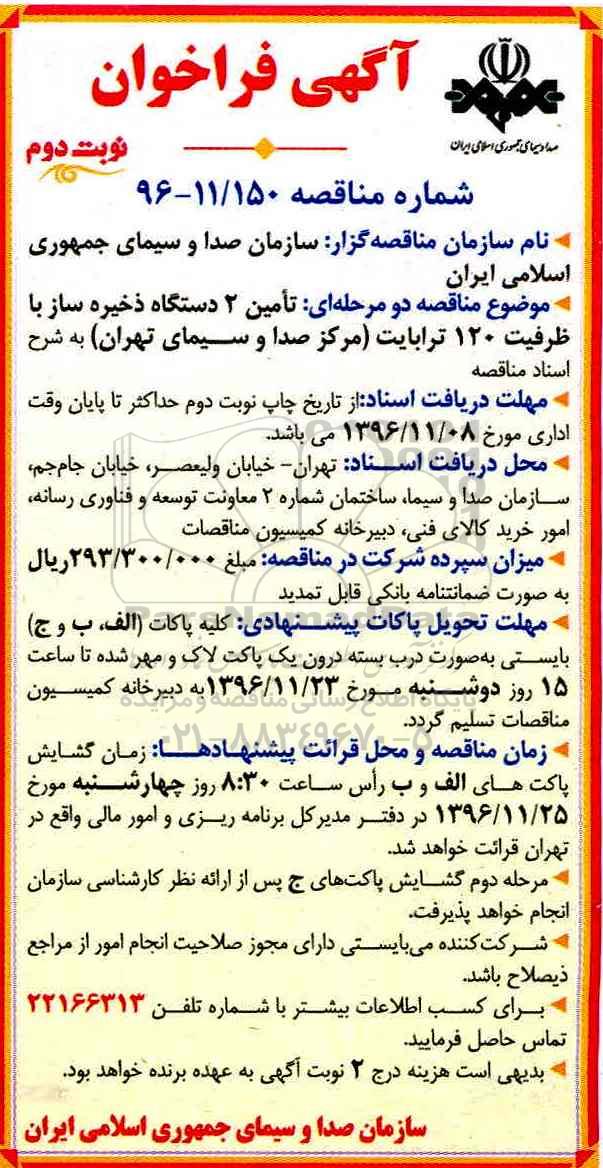 آگهی فراخوان
صدا و سیمای جمهوری اسلامی ایران
نوبت دوم
شماره مناقصه ۹۶-۱۱/۱۵۰
نام سازمان مناقصه‌گزار: سازمان صدا و سیمای جمهوری
اسلامی ایران
موضوع مناقصه دو مرحله‌ای: تأمین ۲ دستگاه ذخیره ساز با
ظرفیت ۱۲۰ ترابایت (مرکز صدا و سیمای تهران) به شرح
اسناد مناقصه
مهلت دریافت اسناد:از تاریخ چاپ نوبت دوم حداکثر تا پایان وقت
اداری مورخ ۱۳۹۶/۱۱/۰۸ می باشد.
محل دریافت اسناد: تهران- خیابان ولیعصر، خیابان جام‌جم،
سازمان صدا و سیما، ساختمان شماره ۲ معاونت توسعه و فناوری رسانه،
امور خرید کالای فنی، دبیرخانه کمیسیون مناقصات
میزان سپرده شرکت در مناقصه: مبلغ ۲۹۳/۳۰۰/۰۰۰ریال
به صورت ضمانتنامه بانکی قابل تمدید
ParsNamadData
مهلت تحویل پاکات پیشنهادی: کلیه پاکات (الف، ب و ج)
بایستی به‌صورت درب بسته درون یک پاکت لاک و مهر شده تا ساعت
۱۵ روز دوشنبه مورخ ۱۳۹۶/۱۱/۲۳به دبیرخانه کمیسیون
پایگاه اطلاع رسانی مناقصه و مزایده
مناقصات تسلیم گردد.
۰۲۱-۸۸۳۴۹۶۷۰-۵
زمان مناقصه و محل قرائت پیشنهادها: زمان گشایش
پاکت های الف و ب رأس ساعت ۸:۳۰ روز چهارشنبه مورخ
۱۳۹۶/۱۱/۲۵ در دفتر مدیرکل برنامه ریزی و امور مالی واقع در
تهران قرائت خواهد شد.
مرحله دوم گشایش پاکت‌های ج پس از ارائه نظر کارشناسی سازمان
انجام خواهد پذیرفت.
شرکت‌کننده می‌بایستی دارای مجوز صلاحیت انجام امور از مراجع
ذیصلاح باشد.
برای کسب اطلاعات بیشتر با شماره تلفن ۲۲۱۶۶۳۱۳
تماس حاصل فرمایید.
بدیهی است هزینه درج ۲ نوبت آگهی به عهده برنده خواهد بود.
سازمان صدا و سیمای جمهوری اسلامی ایران